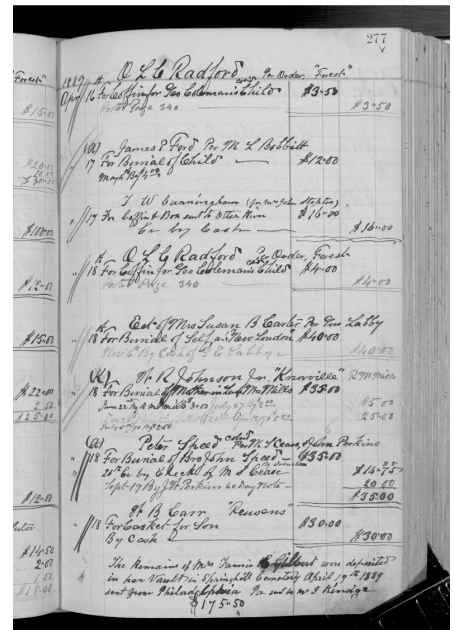 277
1889 O L C Radford Per Order, "Forest"
Apr 16 For Coffin for Geo Coleman's Child $3.50 $3.50
Page 340
James P Ford Per M L Bobbitt
17 For Burial of Child — $12.00
J W Cunningham (for Mr John Stapton).
17 For Coffin & Box sent to Otter River $16.00
Cr by Cash $16.00
O L C Radford Per Order, Forest
18 For Coffin for Geo Coleman's Child $4.00 $4.00
Page 340
Est of Mrs Susan B Easter Per Geo Labby
18 For Burial of Self, at "New London" $40.00
$40.00
W R Johnson Jr. "Knorville"
18 For Burial of Mother in Law Mrs Mills $35.00
15.00
25.00
Peter Speed cold Per M S Cease & John Perkins
18 For Burial of Bro John Speed — $35.00
25th Cr by Check of M S Cease $14.75
Sept 17 By J W Perkins 60 Day Note — 20.00
$35.00
W B Carr "Reusens"
18 For Casket for Son $30.00
By Cash $30.00
The Remains of Mrs Fannie Gilbert were deposited
in her Vault in Springhill Cemetery April 19th 1889
sent from Philadelphia Pa
$175.50
"Forest"
$15.00
$100.00
$12.00
$15.00
$22.00
2.50
$12.00
$14.50
2.00
1.50
$18.00